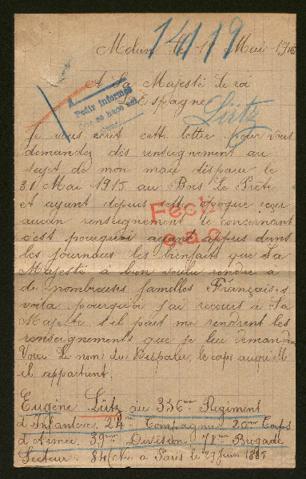 14/19
Melun le 17 Mai 1916
A Sa Majesté le roi
d'Espagne
Lütz
Petit Informe
Je vous écrit cette lettre pour vous
demandez des renseignement au
sujet de mon mari disparu le
31 Mai 1915 au Bois Le Prêtre
et ayant depuis cette époque reçu
aucun renseignement le concernant
c'est pourquoi ayant appris dans
les journaux les bienfait que Sa
Majesté a bien voulu rendre à
de nombreuses familles Français.s
voilà pourquoi j'ai recours à Sa
Majesté s'il peut me rendrent les
renseignements que je lui demande
Voici le nom du disparu, le corps auquel
il appartient.
Eugène Lütz au 356me Regiment
d'Infanterie 24 Compagnie 20me Corps
d'Armée 39me Division 78me Brigade
Secteur 84 Né à Paris le 29 Juin 1885